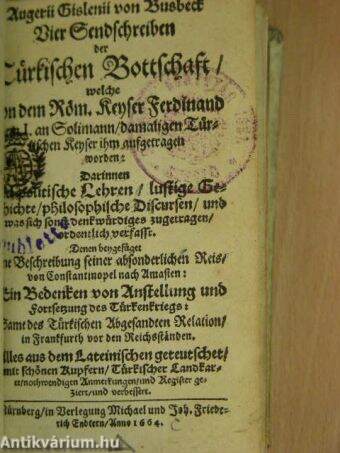 Augerii Gislenii von Busbeck
Vier Sendschreiben
der
Türkischen Bottschaft/
welche
von dem Röm. Keyser Ferdinand
I. an Solimann/damaligen Tür-
kischen Keyser ihm aufgetragen
worden:
Darinnen
Politische Lehren/ lustige Ge-
schichte/philosophische Discursen/ und
was sich sonst denkwürdiges zugetragen/
ordentlich verfasst.
Denen beygefüget
eine Beschreibung seiner absonderlichen Reis/
von Constantinopel nach Amasien:
Ein Bedenken von Anstellung und
Fortsetzung des Türkenkriegs:
samt des Türkischen Abgesandten Relation/
in Frankfurth vor den Reichsständen.
Alles aus dem Lateinischen geteutschet/
mit schönen Kupfern/ Türkischer Landkar-
te/nothwendigen Anmerkungen/und Register ge-
ziert/und verbessert.
Nürnberg/in Verlegung Michael und Joh. Friede-
rich Endtern/Anno 1664.
Antikvárium.hu